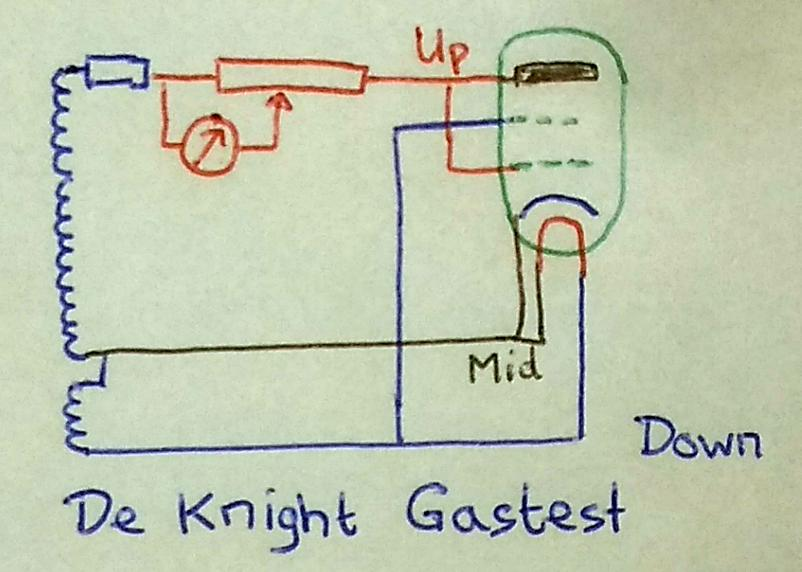 Up
Mid
Down
De Knight Gastest